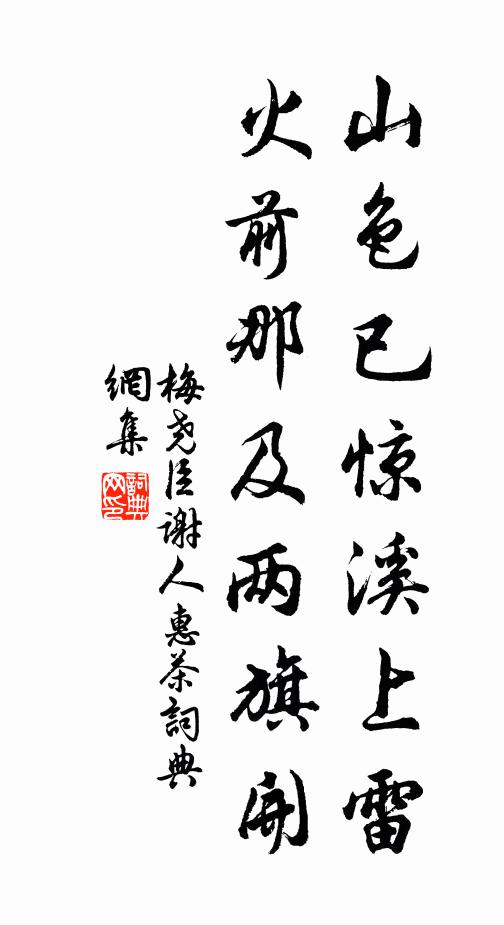 山色已惊溪上雷
火前那及两旗开
梅尧臣谢人惠茶詞典
網集
詞典
网印